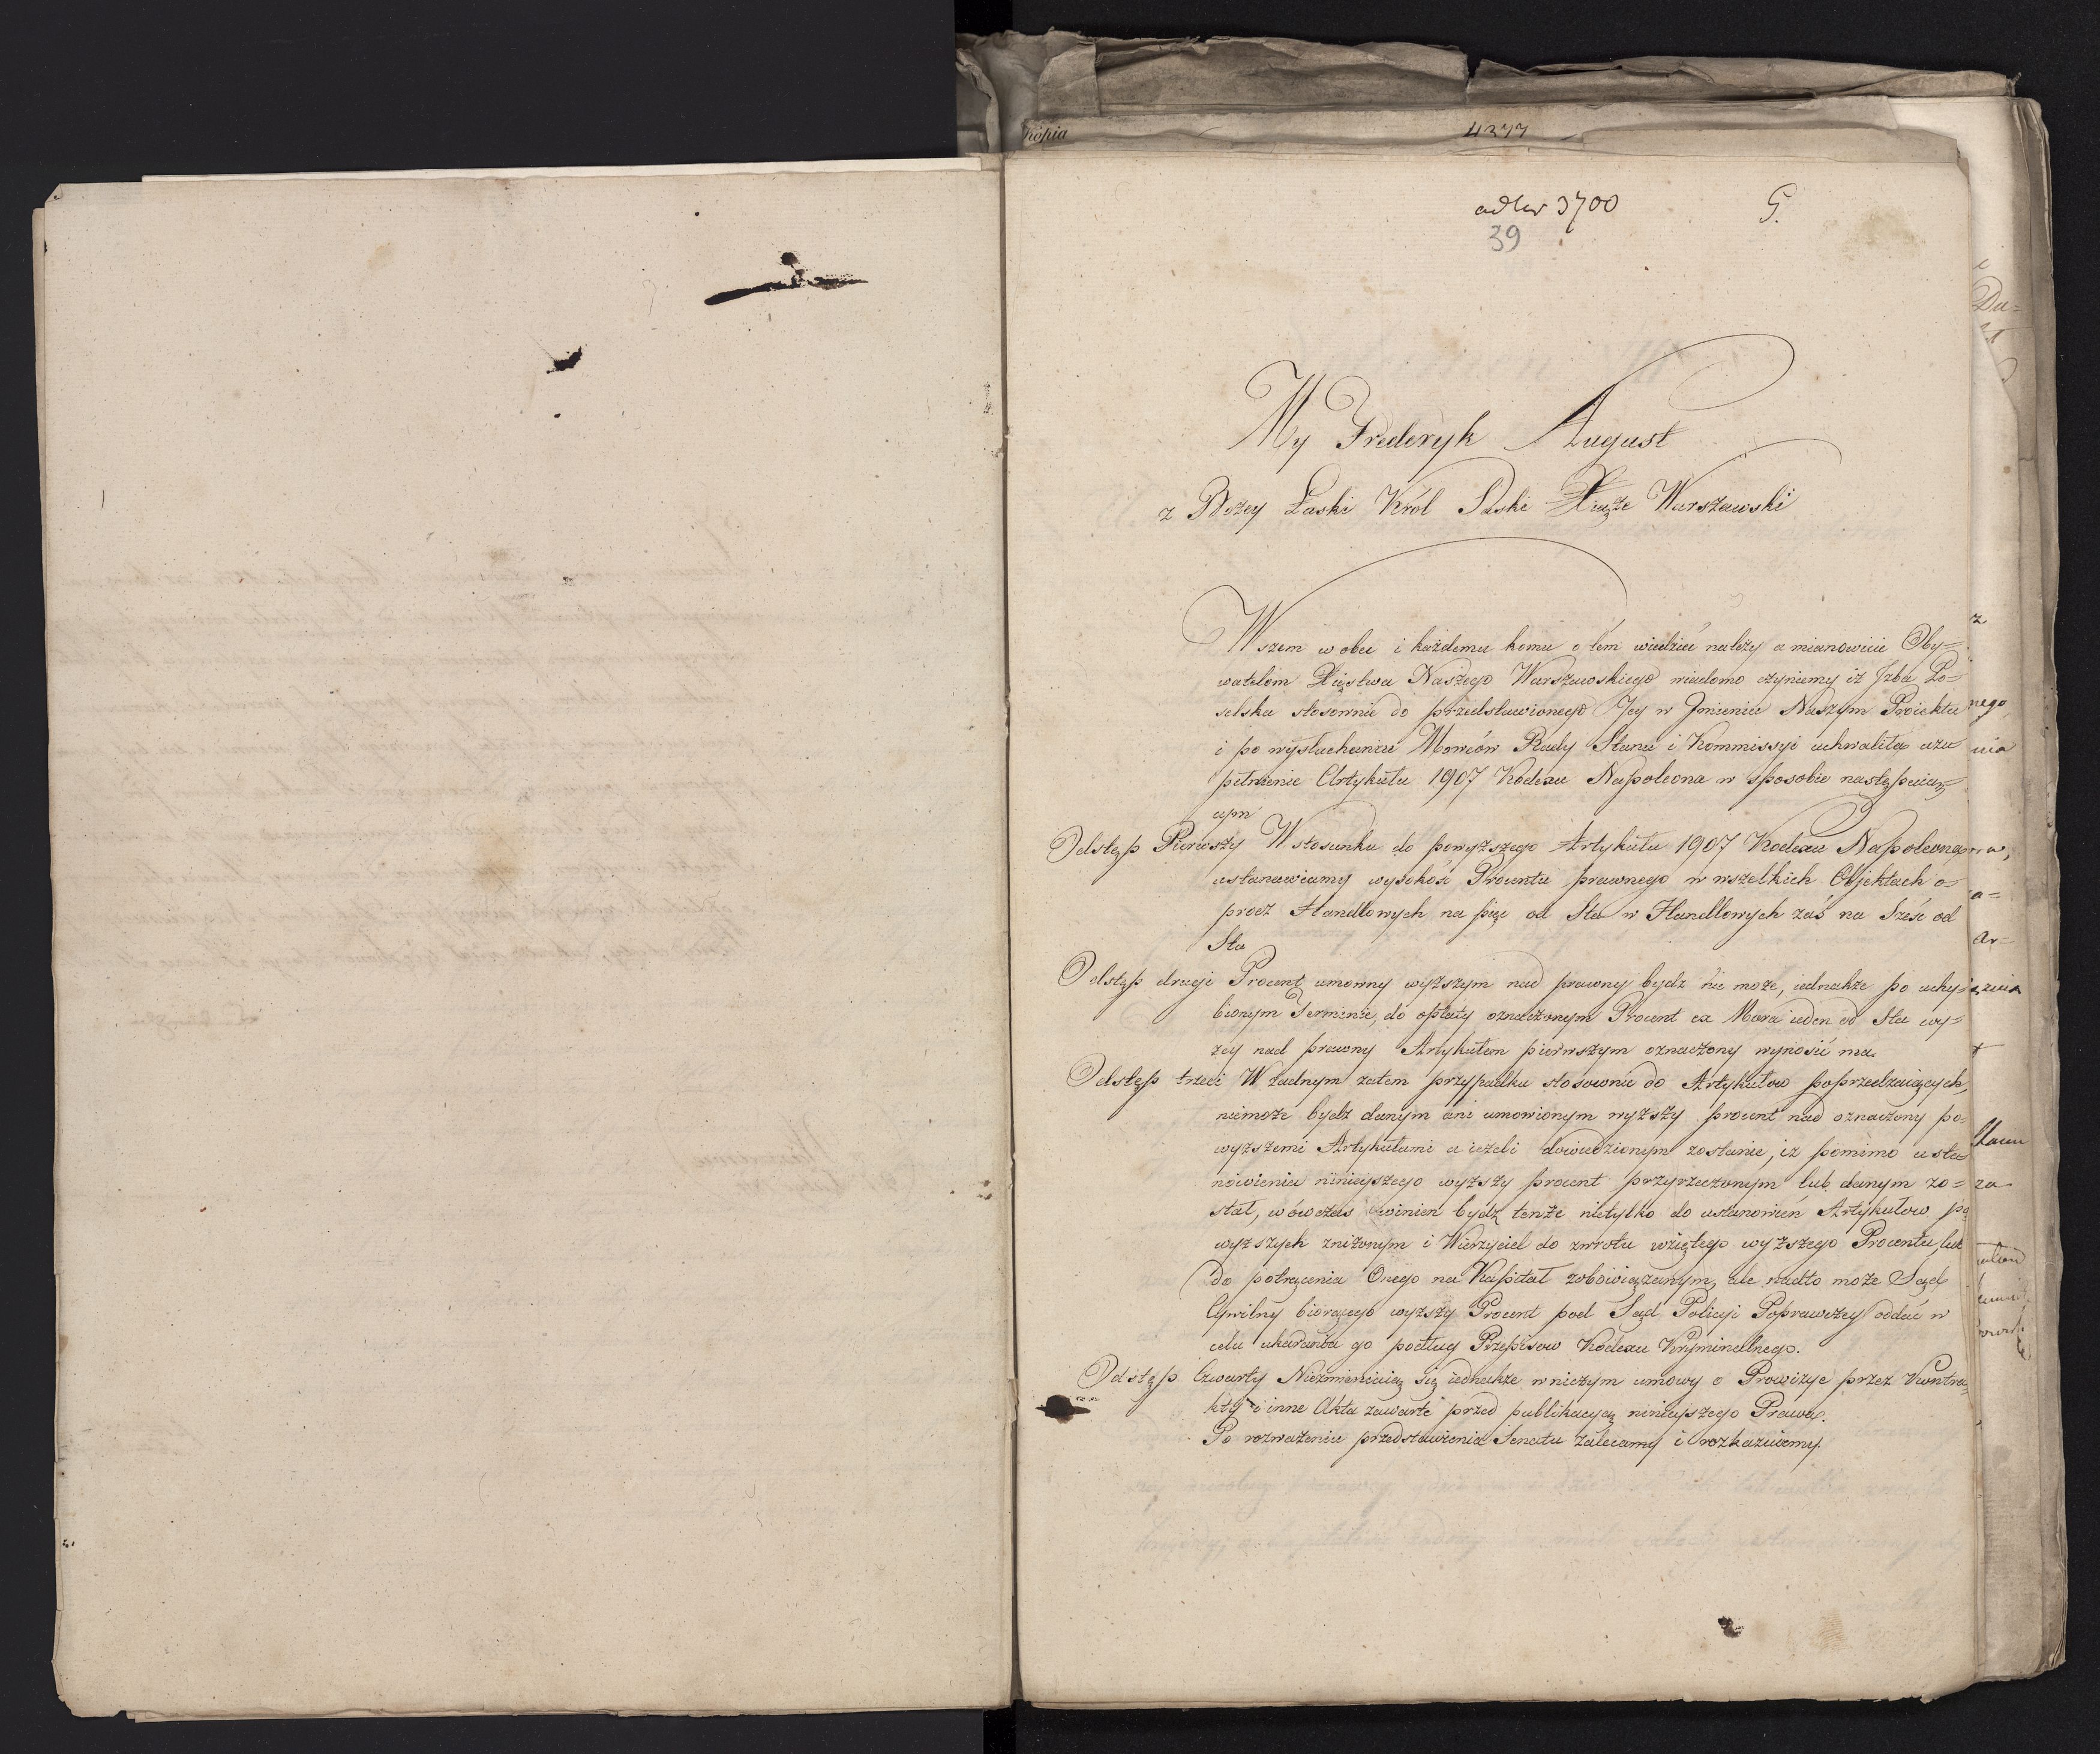 kópia
4377
3700
G.
39
My Frederyk August
z Bożey Łaski Król Saski Xiąże Warszawski
Wszem wobec i każdemu komu o tém wiedzieć należy a mianowicie Oby=
watelom Xięstwa Naszego Warszawskiego wiadomo czyniemy iż Izba Po=
selska stosownie do przedstawionego Jey w Jmieniu Naszym Proiektu
i po wysłuchaniu Mowców Rady Stanu i Kommissyi uchwaliła uzu
pełnienie Artykułu 1907 Kodexu Napoleona w sposobie następuiącym
Odstęp Pierwszy W stosunku do powyższego Artykułu 1907 Kodexu Napoleona
ustanawiamy wysokość Procentu prawnego w wszelkich Objektach o=
procz Handlowych na pięć od Sta w Handlowych zaś na Sześć od
Sta
Odstęp drugi Procent umowny wyższym nad prawny bydz nie może, iednakże po uchy=
bionym Terminie, do opłaty oznaczonym Procent ex Mora ieden od Sta wy=
żey nad prawny Artykułem pierwszym oznaczony wynosić ma.
Odstęp trzeci W żadnym zatem przypadku stosownie do Artykułow poprzedzaiących,
niemoże bydz danym ani umowionym wyższy procent nad oznaczony po=
wyższemi Artykułami a ieżeli dowiedzionym zostanie, iż pomimo usta=
nowienia ninieyszego wyższy procent przyrzeczonym lub danym zo=
stał, wówczas winien bydź tenże nietylko do ustanowień Artykułow po
wyższych zniżonym i Wierzyciel do zwrotu wziętego wyższego Procentu, lub
do potrącenia Onego na Kapitał zobowiązanym, ale nadto może Sąd
Cywilny biorącego wyższy Procent pod Sąd Policyi Poprawczey oddać w
celu ukarania go podług Przepisow Kodexu Kryminalnego.
Odstęp Czwarty Niezmieniaiąc się iednakże w niczym umowy o Prowizye przez Kontra=
kty i inne Akta zawarte przed publikacyą ninieyszego Prawa.
Po rozważeniu przedstawienia Senatu zalecamy i rozkazuiemy.